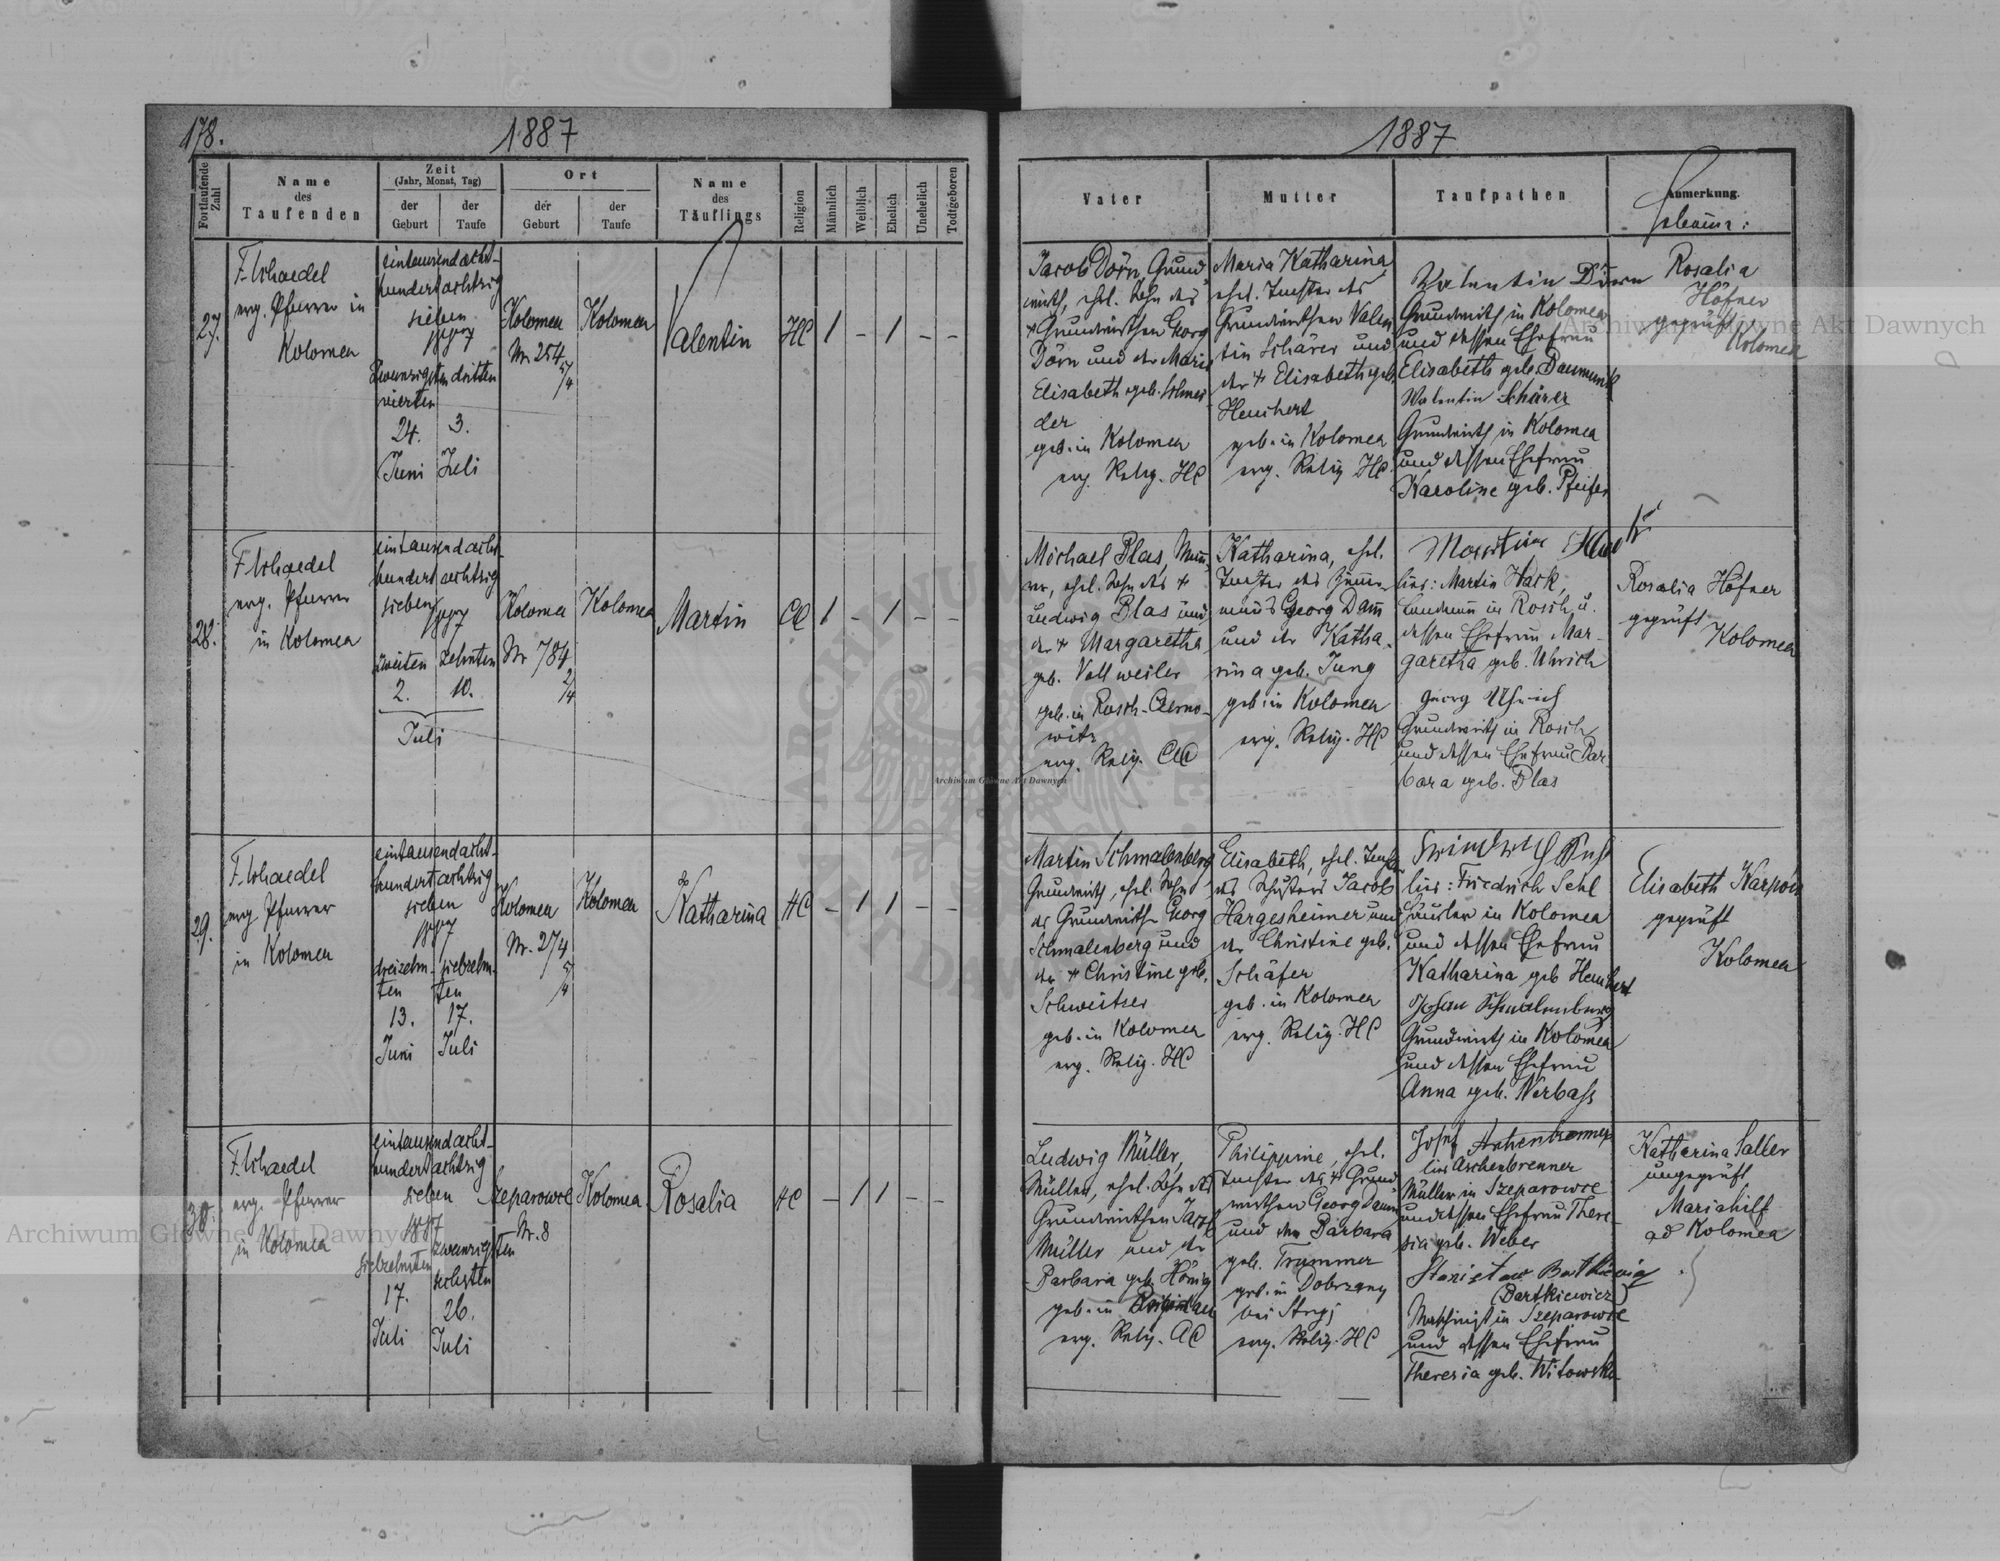 178.
1887
Fortlaufende Zahl
Name
des
Taufenden
Zeit
(Jahr, Monat, Tag)
der
Geburt
der
Taufe
Ort
der
Geburt
der
Taufe
Name
des
Täuflings
Religion
Männlich
Weiblich
Ehelich
Unehelich
Todtgeboren
27.
F. Schaedel
evg. Pfarrer in
Kolomea
eintausendacht-
hundertachtzig
sieben
1887
Zwanzigsten
vierten
24.
Juni
dritten
3.
Juli
Kolomea
Nr. 254
5/4
Kolomea
Valentin
HC
1
-
1
-
-
28.
F. Schaedel
evg. Pfarrer
in Kolomea
eintausendacht-
hundert achtzig
sieben
1887
zweiten zehnten
2. 10.
Juli
Kolomea
Nr 784
2/4
Kolomea
Martin
CC
1
-
1
-
-
29.
F. Schaedel
evg Pfarrer
in Kolomea
eintausendacht-
hundertachtzig
sieben
1887
dreizehn-
ten
13.
Juni
siebzehn-
ten
17.
Juli
Kolomea
Nr. 274
5/4
Kolomea
Katharina
HC
-
1
1
-
-
30.
F. Schaedel
evg. Pfarrer
in Kolomea
eintausendacht-
hundertachtzig
sieben
1887
siebzehnten
17.
Juli
zwanzigsten
sechsten
26.
Juli
Szeparowce
Nr. 8
Kolomea
Rosalia
HC
-
1
1
-
-
1887
Vater
Mutter
Taufpathen
Anmerkung.
Hebamme:
Jacob Dörn, Grund
wirth, ehel. Sohn des
† Grundwirthen Georg
Dörn und der Maria
Elisabeth geb. Schnei
der
geb. in Kolomea
evg. Relig. HC
Maria Katharina
ehel. Tochter des
Grundwirthen Valen
tin Schärer und
der † Elisabeth geb.
Heuchert
geb. in Kolomea
evg. Relig HC
Valentin Dörn
Grundwirth in Kolomea
und dessen Ehefrau
Elisabeth geb. Daumunk
Valentin Schärer
Grundwirth in Kolomea
und dessen Ehefrau
Karoline geb. Pfeifer
Rosalia
Höfner
geprüft
Kolomea
Michael Blas, Mau
rer, ehel. Sohn des †
Ludwig Blas und
der † Margaretha
geb. Vollweiler
geb. in Rosch-Czerno-
witz
evg. Relig. CC
Katharina, ehel.
Tochter des Zimmer
manns Georg Dam̄
und der Katha
rina geb. Jung
geb. in Kolomea
evg. Relig. HC
lies: Martin Hack,
Landmann in Rosch u.
dessen Ehefrau Mar-
garetha geb. Uhrich
Georg Uhrich
Grundwirth in Rosch
und dessen Ehefrau Bar
bara geb. Blas
Rosalia Höfner
geprüft
Kolomea
Martin Schmalenberg
Grundwirth, ehel. Sohn
des Grundwirths Georg
Schmalenberg und
der † Christine geb.
Schweitzer
geb. in Kolomea
evg. Relig. HC
Elisabeth, ehel. Tochter
des Schusters Jacob
Hargesheimer und
der Christine geb.
Schäfer
geb. in Kolomea
evg. Relig. HC
lies: Friedrich Sehl
Häusler in Kolomea
und dessen Ehefrau
Katharina geb Heuchert
Johann Schmalenberg
Grundwirth in Kolomea
und dessen Ehefrau
Anna geb. Nerbass
Elisabeth
geprüft
Kolomea
Ludwig Müller,
Müller, ehel. Sohn des
Grundwirthen Jacob
Müller und der
Barbara geb. Hönig
geb. in
evg. Relig. AC
Philippine, ehel.
Tochter des † Grund
wirthen Georg Damm
und der Barbara
geb. Trummer
geb. in Dobrzany
bei Stryj
evg. Relig. HC
Josef Aschenbrenner
lies Aschenbrenner
Müller in Szeparowce
und dessen Ehefrau There-
sia geb. Weber
Stanisław Bartkiewicz
(Bartkiewicz)
Maschinist in Szeparowce
und dessen Ehefrau
Theresia geb. Witowska
Katharina Saller
ungeprüft
Mariahilf
ad Kolomea
Archiwum Główne Akt Dawnych
Archiwum Główne Akt Dawnych
Archiwum Główne Akt Dawnych